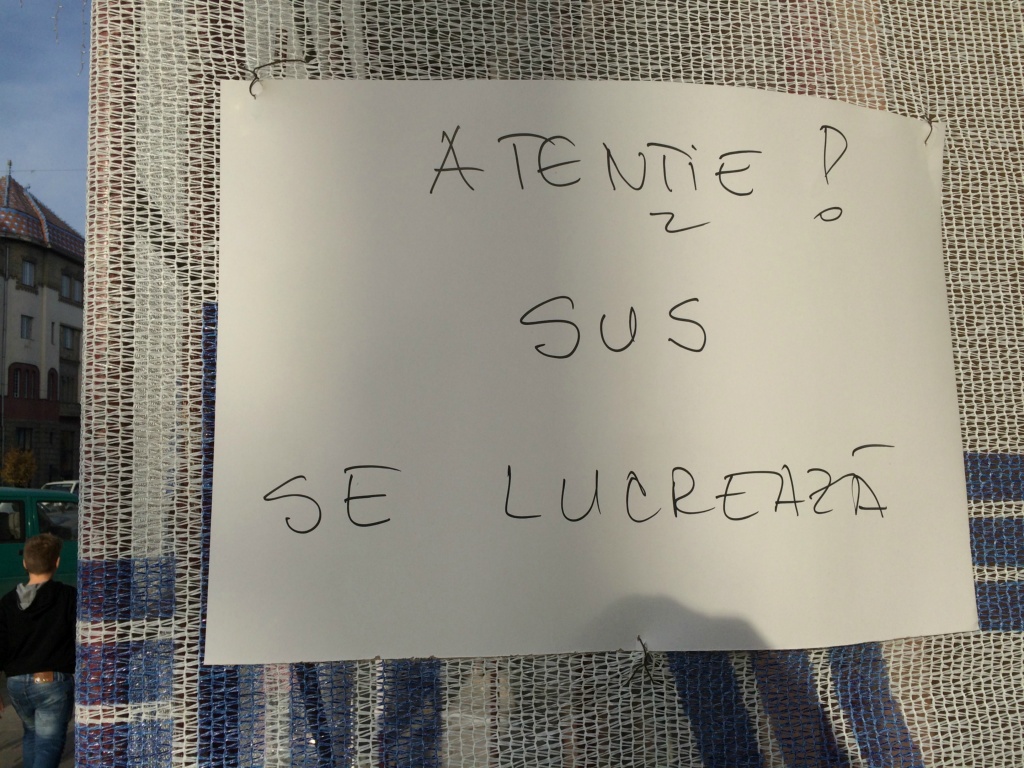 ATENȚIE !
SUS
SE LUCREAZĂ